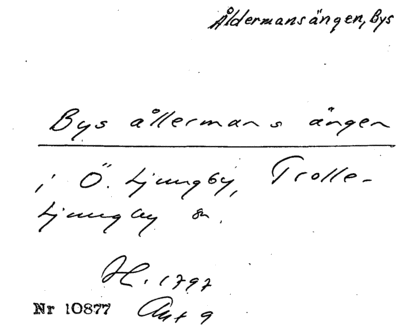 Åldermansängen, Bys
Bys ållermans ängen
i Ö. Ljungby, Trolle-
Ljungby sn.
H. 1797
Akt 9
Nr 10877